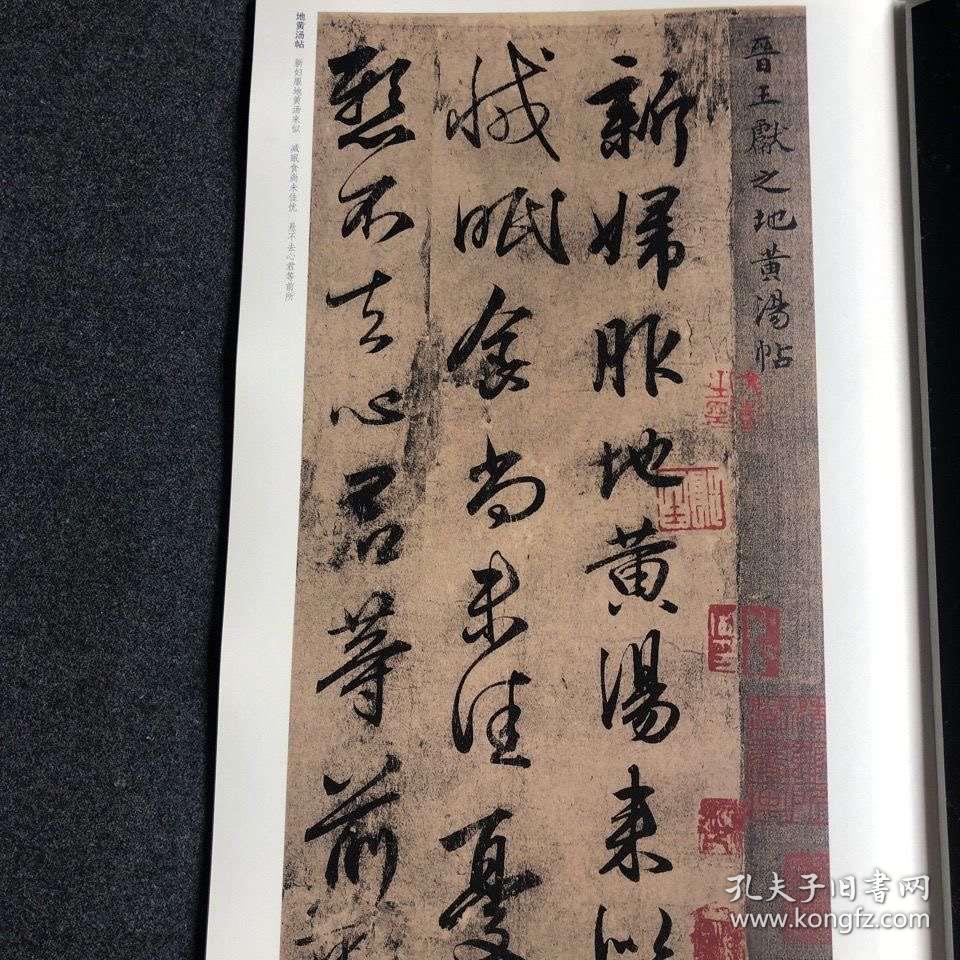 晉王獻之地黄湯帖
新婦服地黄湯来似
減眠食尚未佳憂
懸不去心君等前所
地黄汤帖 新妇服地黄汤来似 减眠食尚未佳忧 悬不去心君等前所
孔夫子旧书网
www.kongfz.com